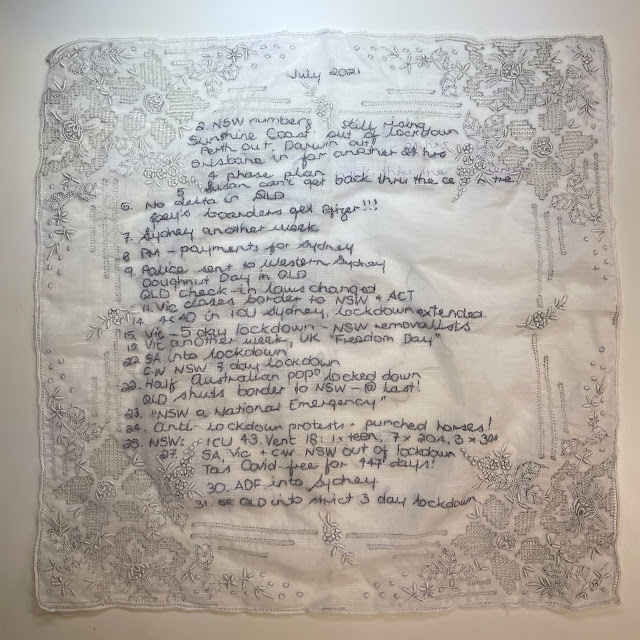 July 2021
2. NSW numbers still rising
Sunshine Coast out of lockdown
Perth out, Darwin out
Brisbane in for another 24 hrs
4 phase plan
5 Susan can't get back thru the
6. No delta in QLD
boarders get Pfizer!!!
7. Sydney another week
8 PM - payments for Sydney
9. Police sent to Western Sydney
Doughnut Day in QLD
QLD check-in laws changed
11. Vic closes border to NSW + ACT
14. 4 x 40 in ICU Sydney, lockdown extended
15. Vic - 5 day lockdown - NSW removalists
19. Vic another week, UK "Freedom Day"
20 SA into lockdown
C-W NSW 7 day lockdown
22. Half Australian pop" locked down
QLD shuts border to NSW - @ last!
23. "NSW a National Emergency"
24. Anti-lockdown protests - punched horses!
25. NSW: ICU 43, Vent 18: 1 x teen, 7 x 20s, 3 x 30s
27. SA, Vic + C-W NSW out of lockdown
Tas Covid free for 447 days!
30. ADF into Sydney
31. SE QLD into strict 3 day lockdown